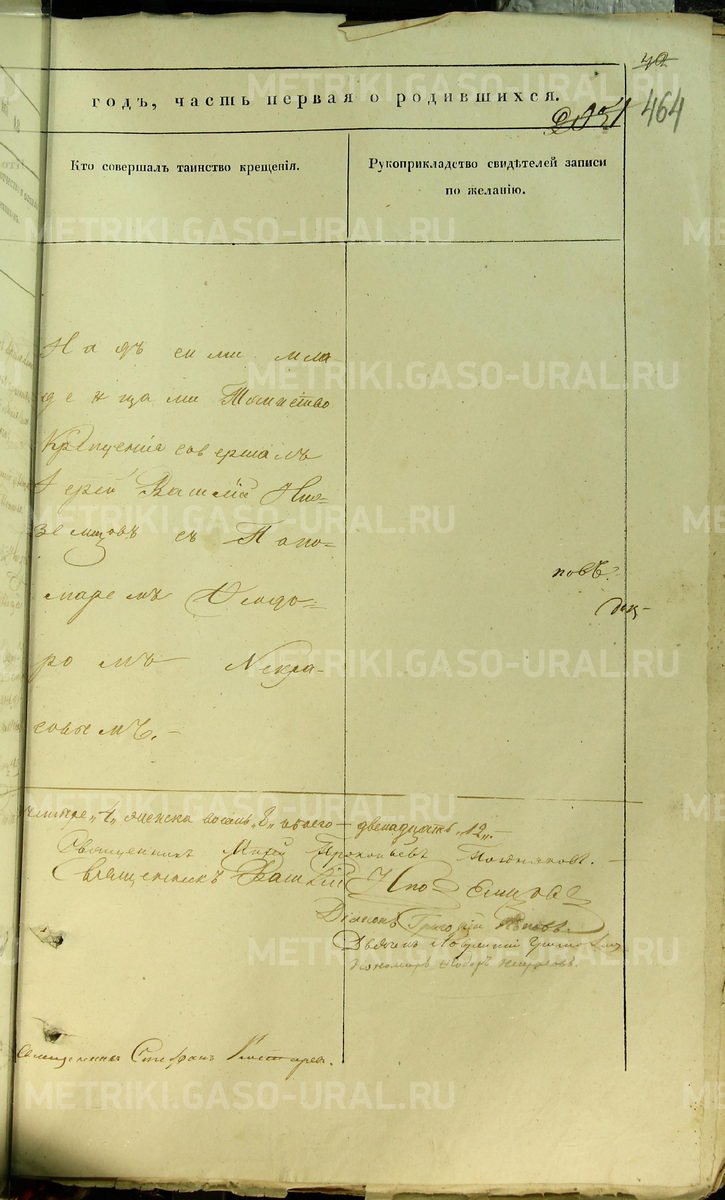 42
464
годъ, часть первая о родившихся.
Кто совершалъ таинство крещенія.
Рукоприкладство свидѣтелей записи
по желанію.
Надъ сими мла-
денцами Таинство
Крещенія совершалъ
Іерей Василій Ино-
земцовъ съ Поно-
маремъ Ѳеодо-
ромъ Некра-
совымъ.-
четыре „4„ женска восемь „8„ обоего - двенадцать „12„.-
Священникъ Прокопьевъ
Священникъ Василій Иноземцовъ
Діаконъ Григорій Поповъ.
Дьячекъ
Пономарь Ѳеодоръ Некрасовъ.
Священникъ Стефанъ
METRIKI.GASO-URAL.RU